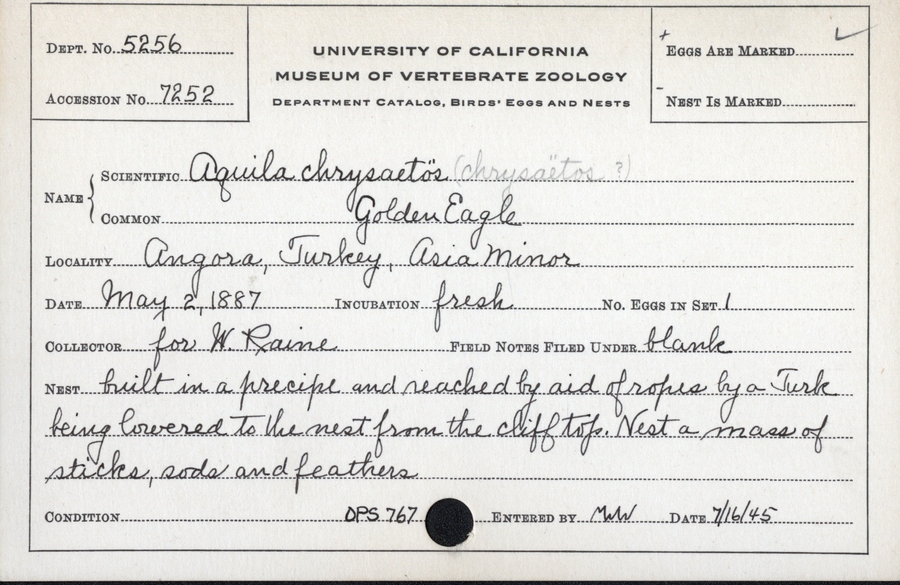 DEPT. No. 5256
ACCESSION No. 7252
UNIVERSITY OF CALIFORNIA
MUSEUM OF VERTEBRATE ZOOLOGY
DEPARTMENT CATALOG, BIRDS' EGGS AND NESTS
+ EGGS ARE MARKED ✓
- NEST IS MARKED
NAME { SCIENTIFIC Aquila chrysaetös (chrysaëtos ?)
COMMON Golden Eagle
LOCALITY Angora, Turkey, Asia Minor
DATE May 2, 1887 INCUBATION fresh No. EGGS IN SET 1
COLLECTOR for W. Raine FIELD NOTES FILED UNDER blank
NEST built in a precipe and reached by aid of ropes by a Turk
being lowered to the nest from the cliff top. Nest a mass of
sticks, sods and feathers
CONDITION OPS 767 ENTERED BY MWW DATE 7/16/45